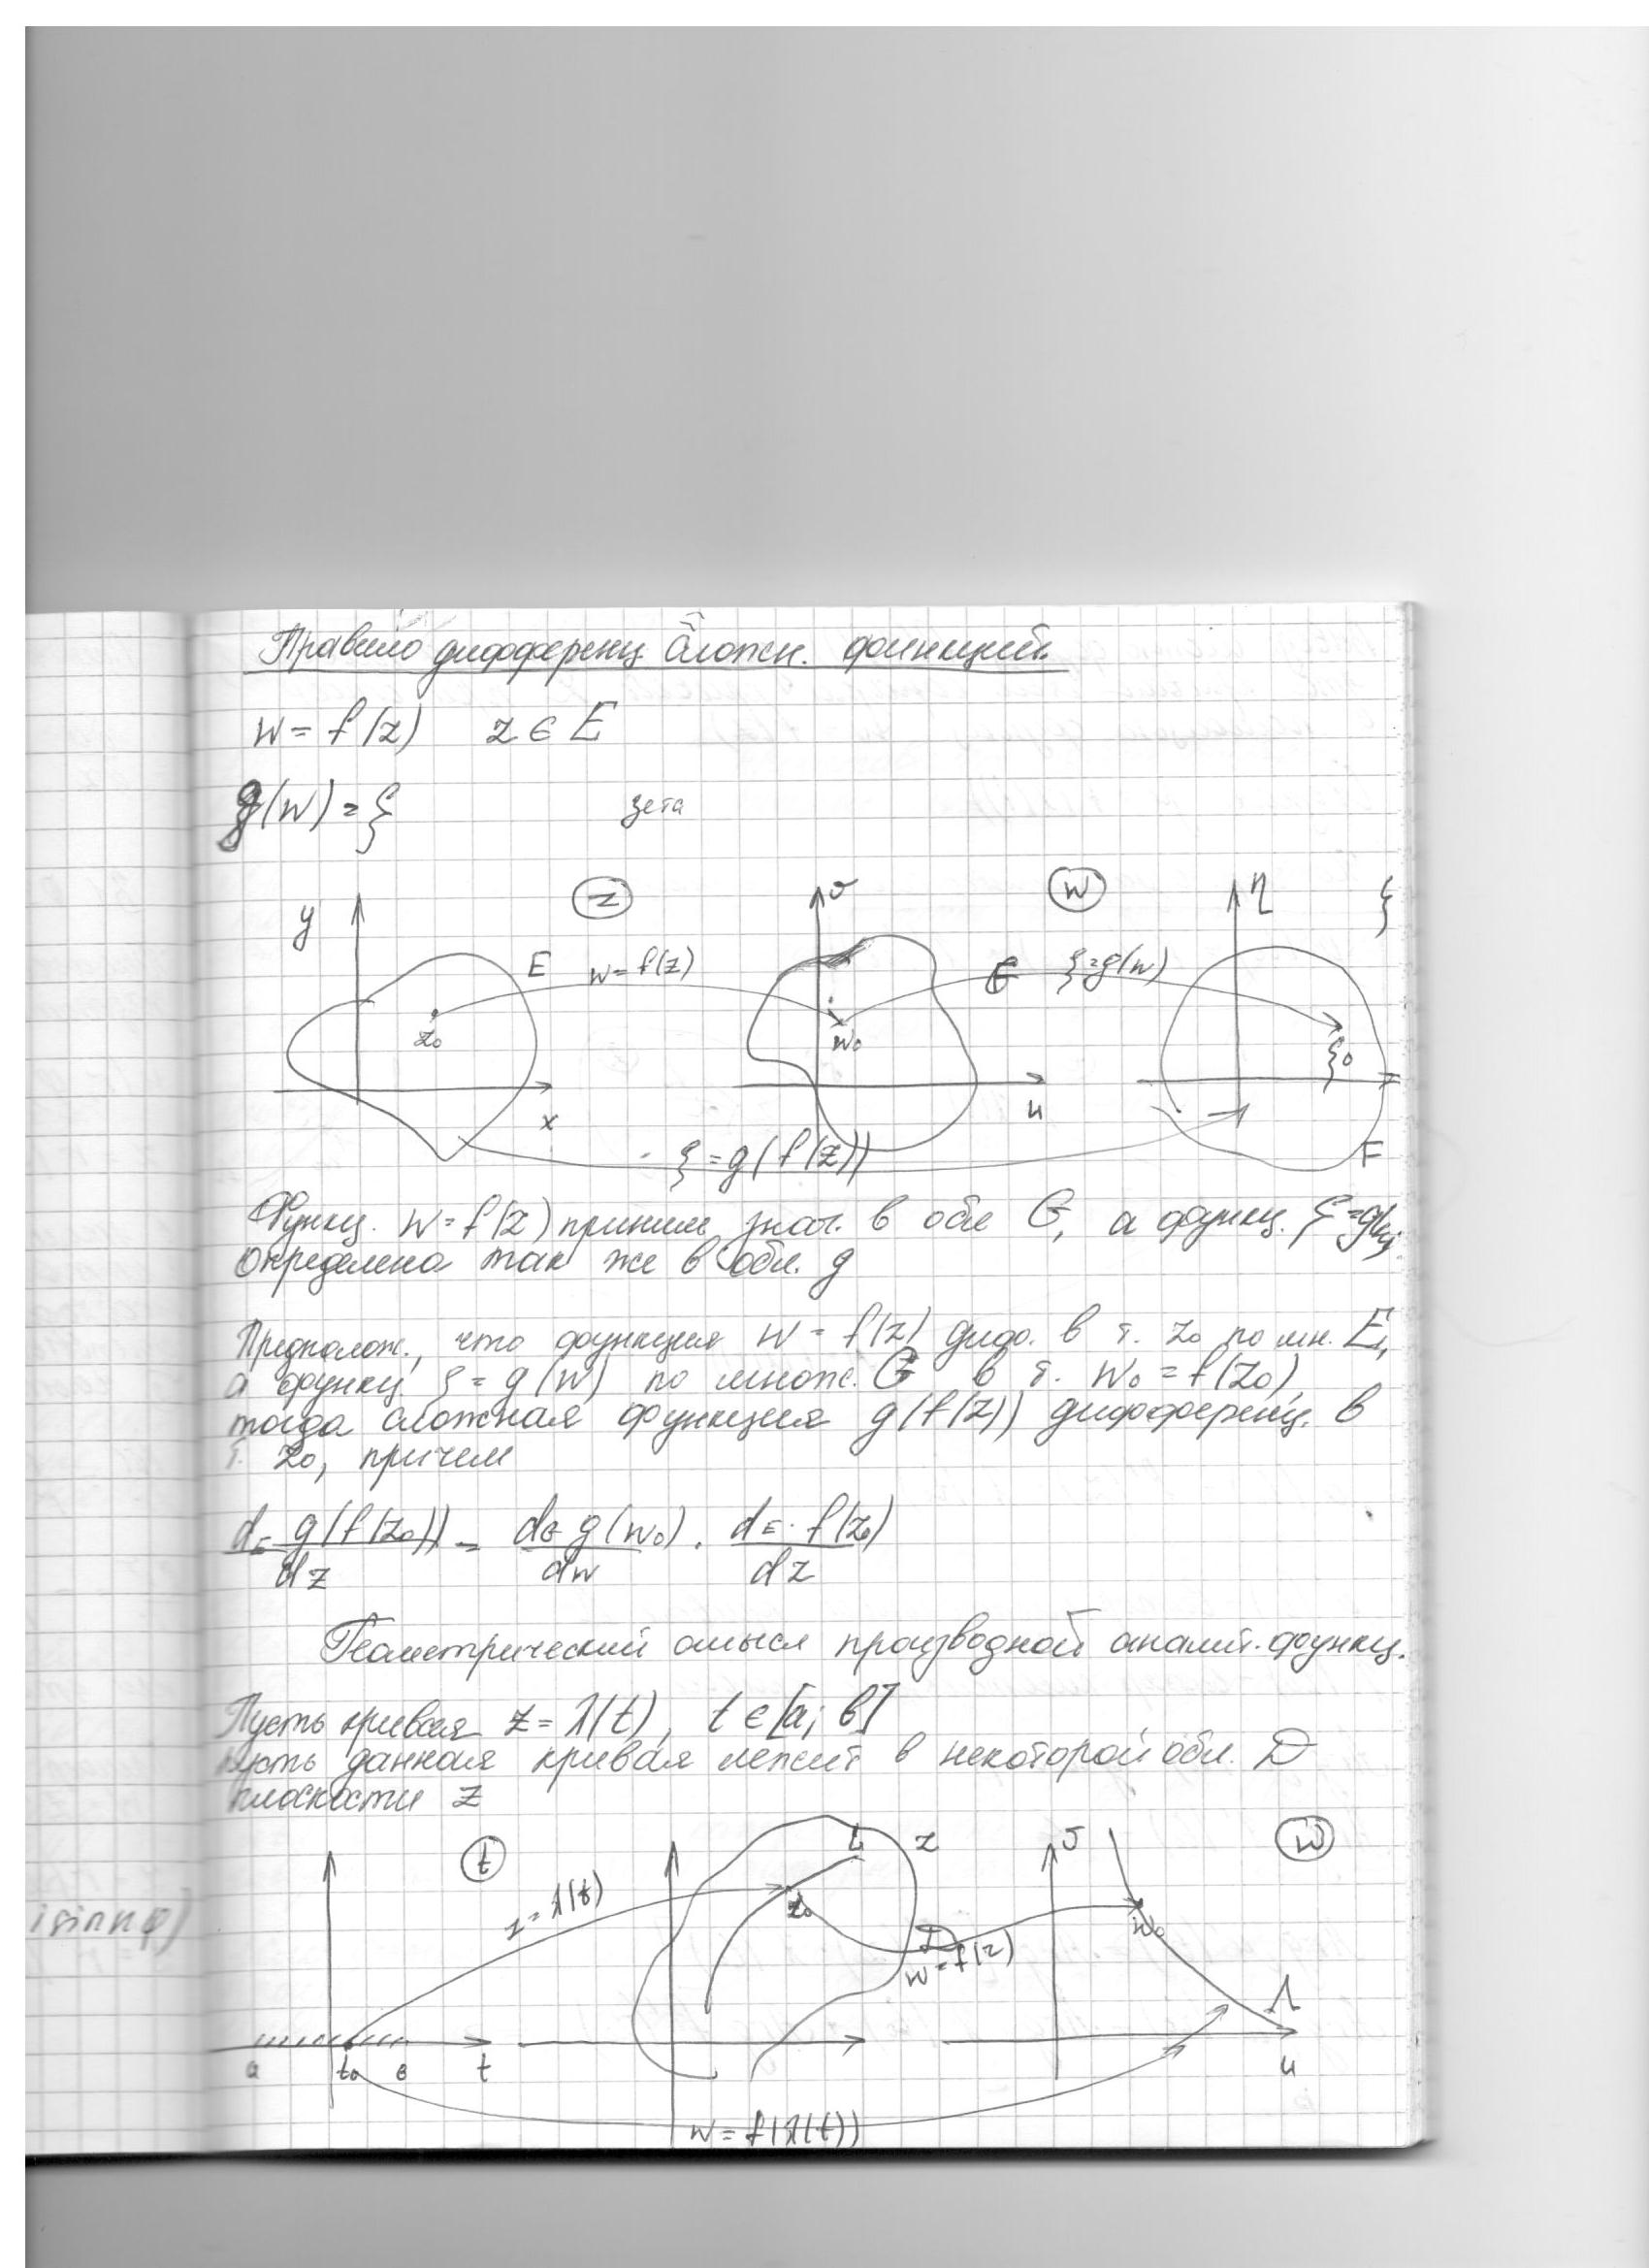 Правило дифференц. сложн. функций.
w = f(z) z ∈ E
g(w) = ξ зета
y z v w η ξ
E w = f(z) G ξ = g(w)
z₀ w₀ ξ₀
x u
ξ = g(f(z)) F
Функц. w = f(z) приним. знач. в обл G, а функц. ξ = g(w)
определена так же в обл. g
Предполож., что функция w = f(z) диф. в т. z₀ по мн. E,
а функц ξ = g(w) по множ. G в т. w₀ = f(z₀),
тогда сложная функция g(f(z)) дифференц. в
т. z₀, причем
d_E g(f(z₀)) / dz = d_G g(w₀) / dw · d_E f(z₀) / dz
Геометрический смысл производной аналит. функц.
Пусть кривая z = λ(t), t ∈ [a; b]
пусть данная кривая лежит в некоторой обл. D
плоскости z
t L z v w
z = λ(t) z₀ w₀
D
w = f(z)
isinnφ)
Λ
a t₀ в t u
w = f(λ(t))